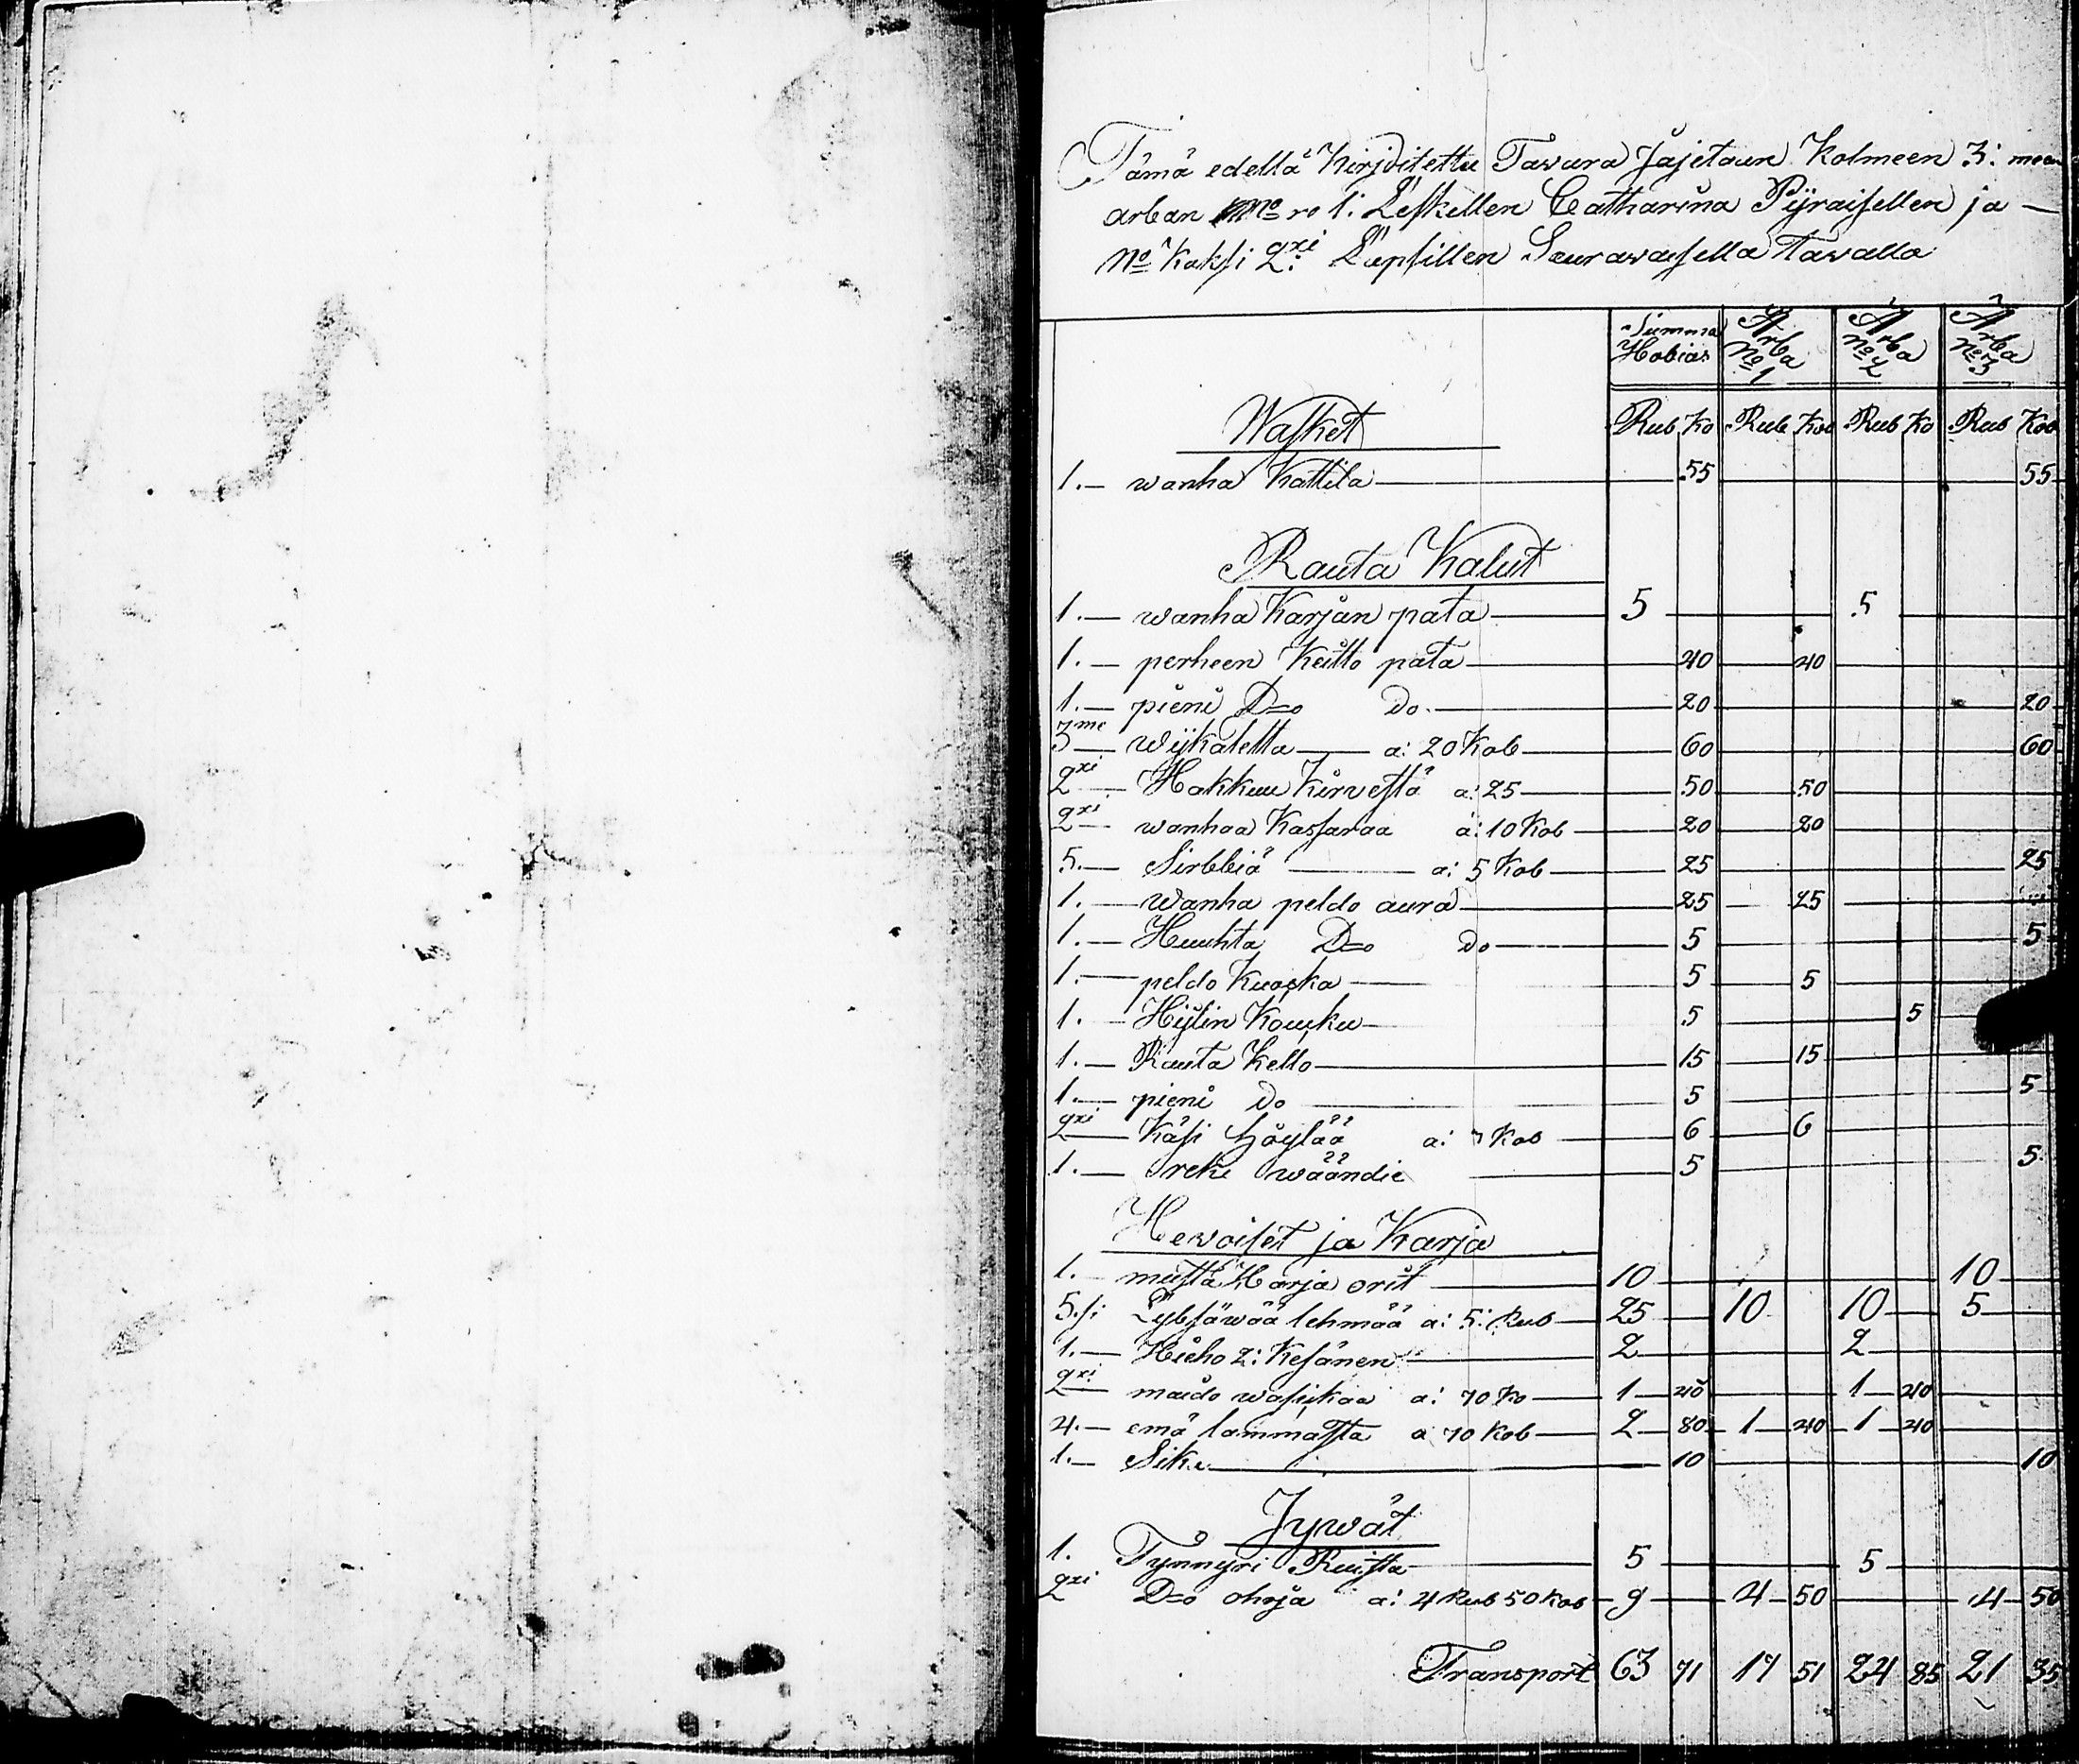 Tämä edellä Kirjoitettu Tavara Jajetaan Kolmeen 3: meen
arban No ro 1: Leskellen Catharina Pyräisellen ja —
No Kaksi 2:xi Lapsillen Seurawaisella Tawalla
Summa Hobias | Arba No 1 | Arba No 2 | Arba No 3
Wasket Rub Ko Rub Kob Rub Ko Rub Kob
1.— wanha Kattila — 55 55
Rauta Kalut
1.— wanha Karjan pata — 5 5
1.— perheen Keitto pata — 40 40
1.— pieni D=o Do — 20 20
3me — wijkatetta — a: 20 Kob — 60 60
2xi — Hakkuu Kirvestä a: 25 — 50 50
2xi — wanhaa Kassaraa a: 10 Kob — 20 20
5.— Sirbbiä — a: 5 Kob — 25 25
1.— Wanha peldo aura — 25 25
1.— Huuhta D=o Do — 5 5
1.— peldo Kuocka — 5 5
1.— Hijlin Koucku — 5 5
1.— Rauta Kello — 15 15
1.— pieni Do — 5 5
2xi — Käsi höylää a: Kob — 6 6
1.— reki wäändie — 5 5
Hewoiset ja Karja
1.— musta Harja orit — 10 10
5.si Lybsäwää lehmää a: 5: Rub — 25 10 10 5
1.— Hieho 2: Kesänen — 2 2
2xi — maido wasikaa a: 70 Ko — 1 40 1 40
4.— emä lammasta a 70 Kob — 2 80 1 40 1 40
1.— Sika — 10 10
Jywät
1. Tynnyri Ruista — 5 5
2xi D=o ohria a: 4 Rub 50 Kob — 9 4 50 4 50
Transport 63 71 17 51 24 85 21 35